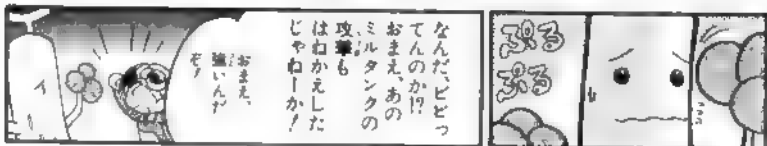 ぷる
ぷる
なんだ、ビビっ
てんのか!?
おまえ、あの
ミルタンクの
攻撃も
はねかえした
じゃねーか!
おまえ、
強いんだ
ぞ!